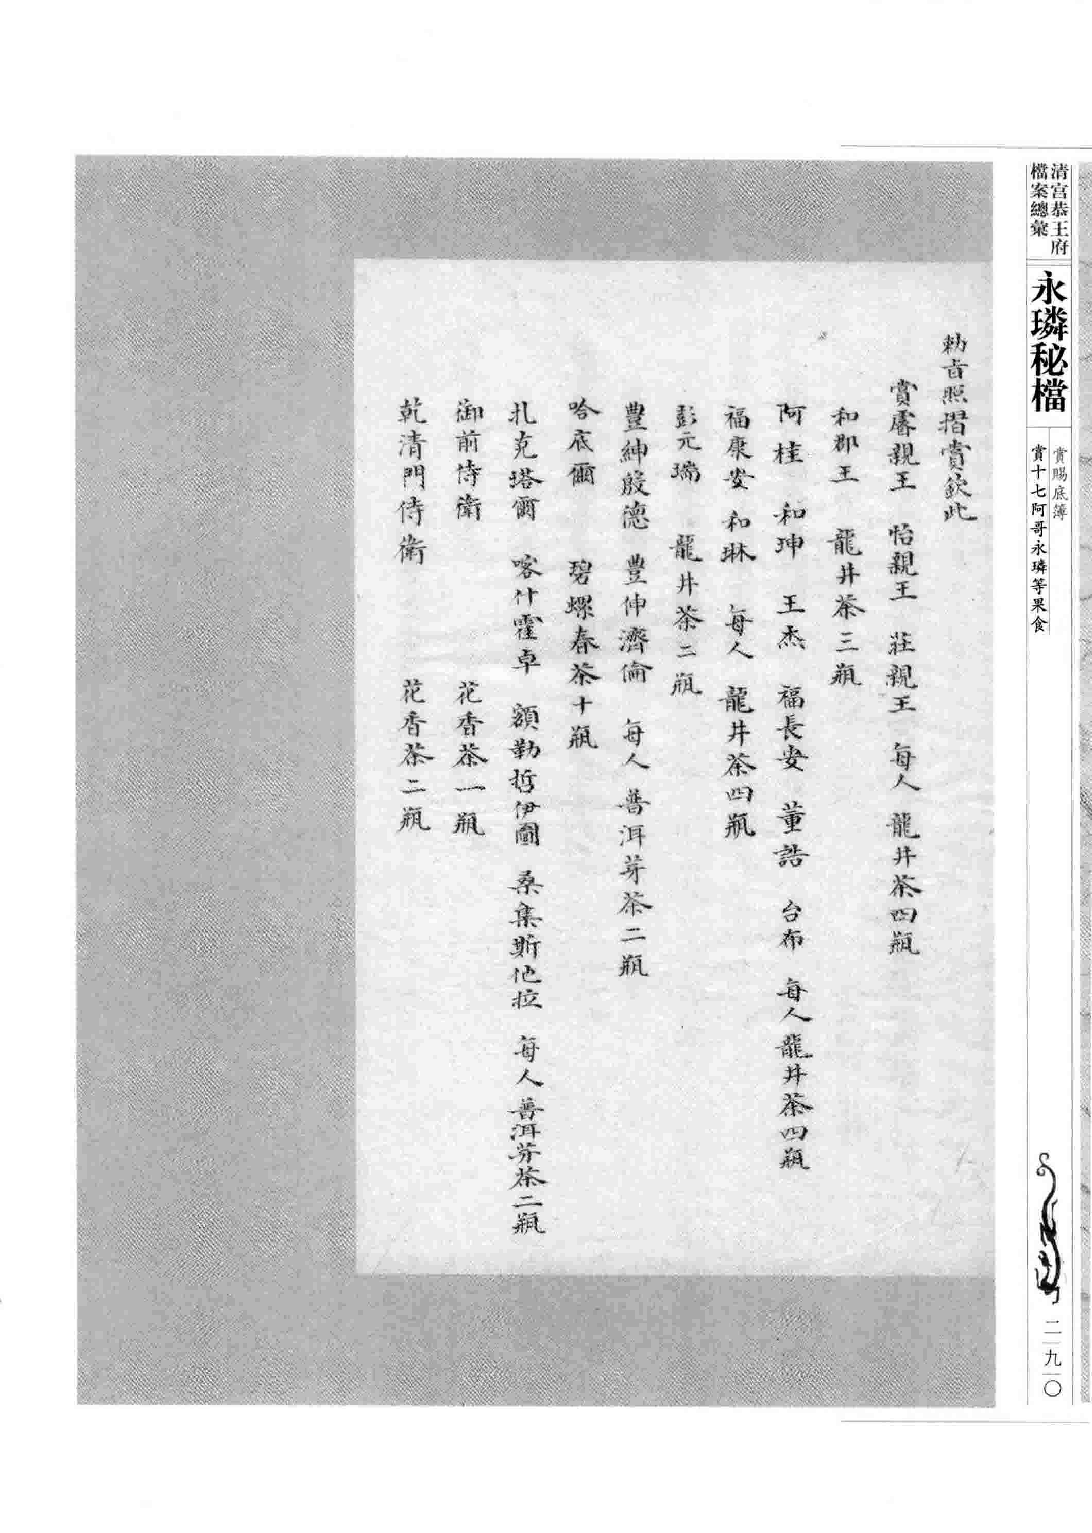 清宮恭王府
檔案總彙
永璘秘檔
賞賜底簿
賞十七阿哥永璘等果食
二九〇
勅旨照摺賞欽此
賞睿親王 怡親王 莊親王 每人 龍井茶四瓶
和郡王 龍井茶三瓶
阿桂 和珅 王杰 福長安 董誥 台布 每人龍井茶四瓶
福康安 和琳 每人 龍井茶四瓶
彭元瑞 龍井茶二瓶
豐紳殷德 豐伸濟倫 每人 普洱芽茶二瓶
哈底爾 碧螺春茶十瓶
扎克塔爾 喀什霍卓 額勒哲伊圖 桑集斯他拉 每人普洱芽茶二瓶
御前侍衛 花香茶一瓶
乾清門侍衛 花香茶二瓶